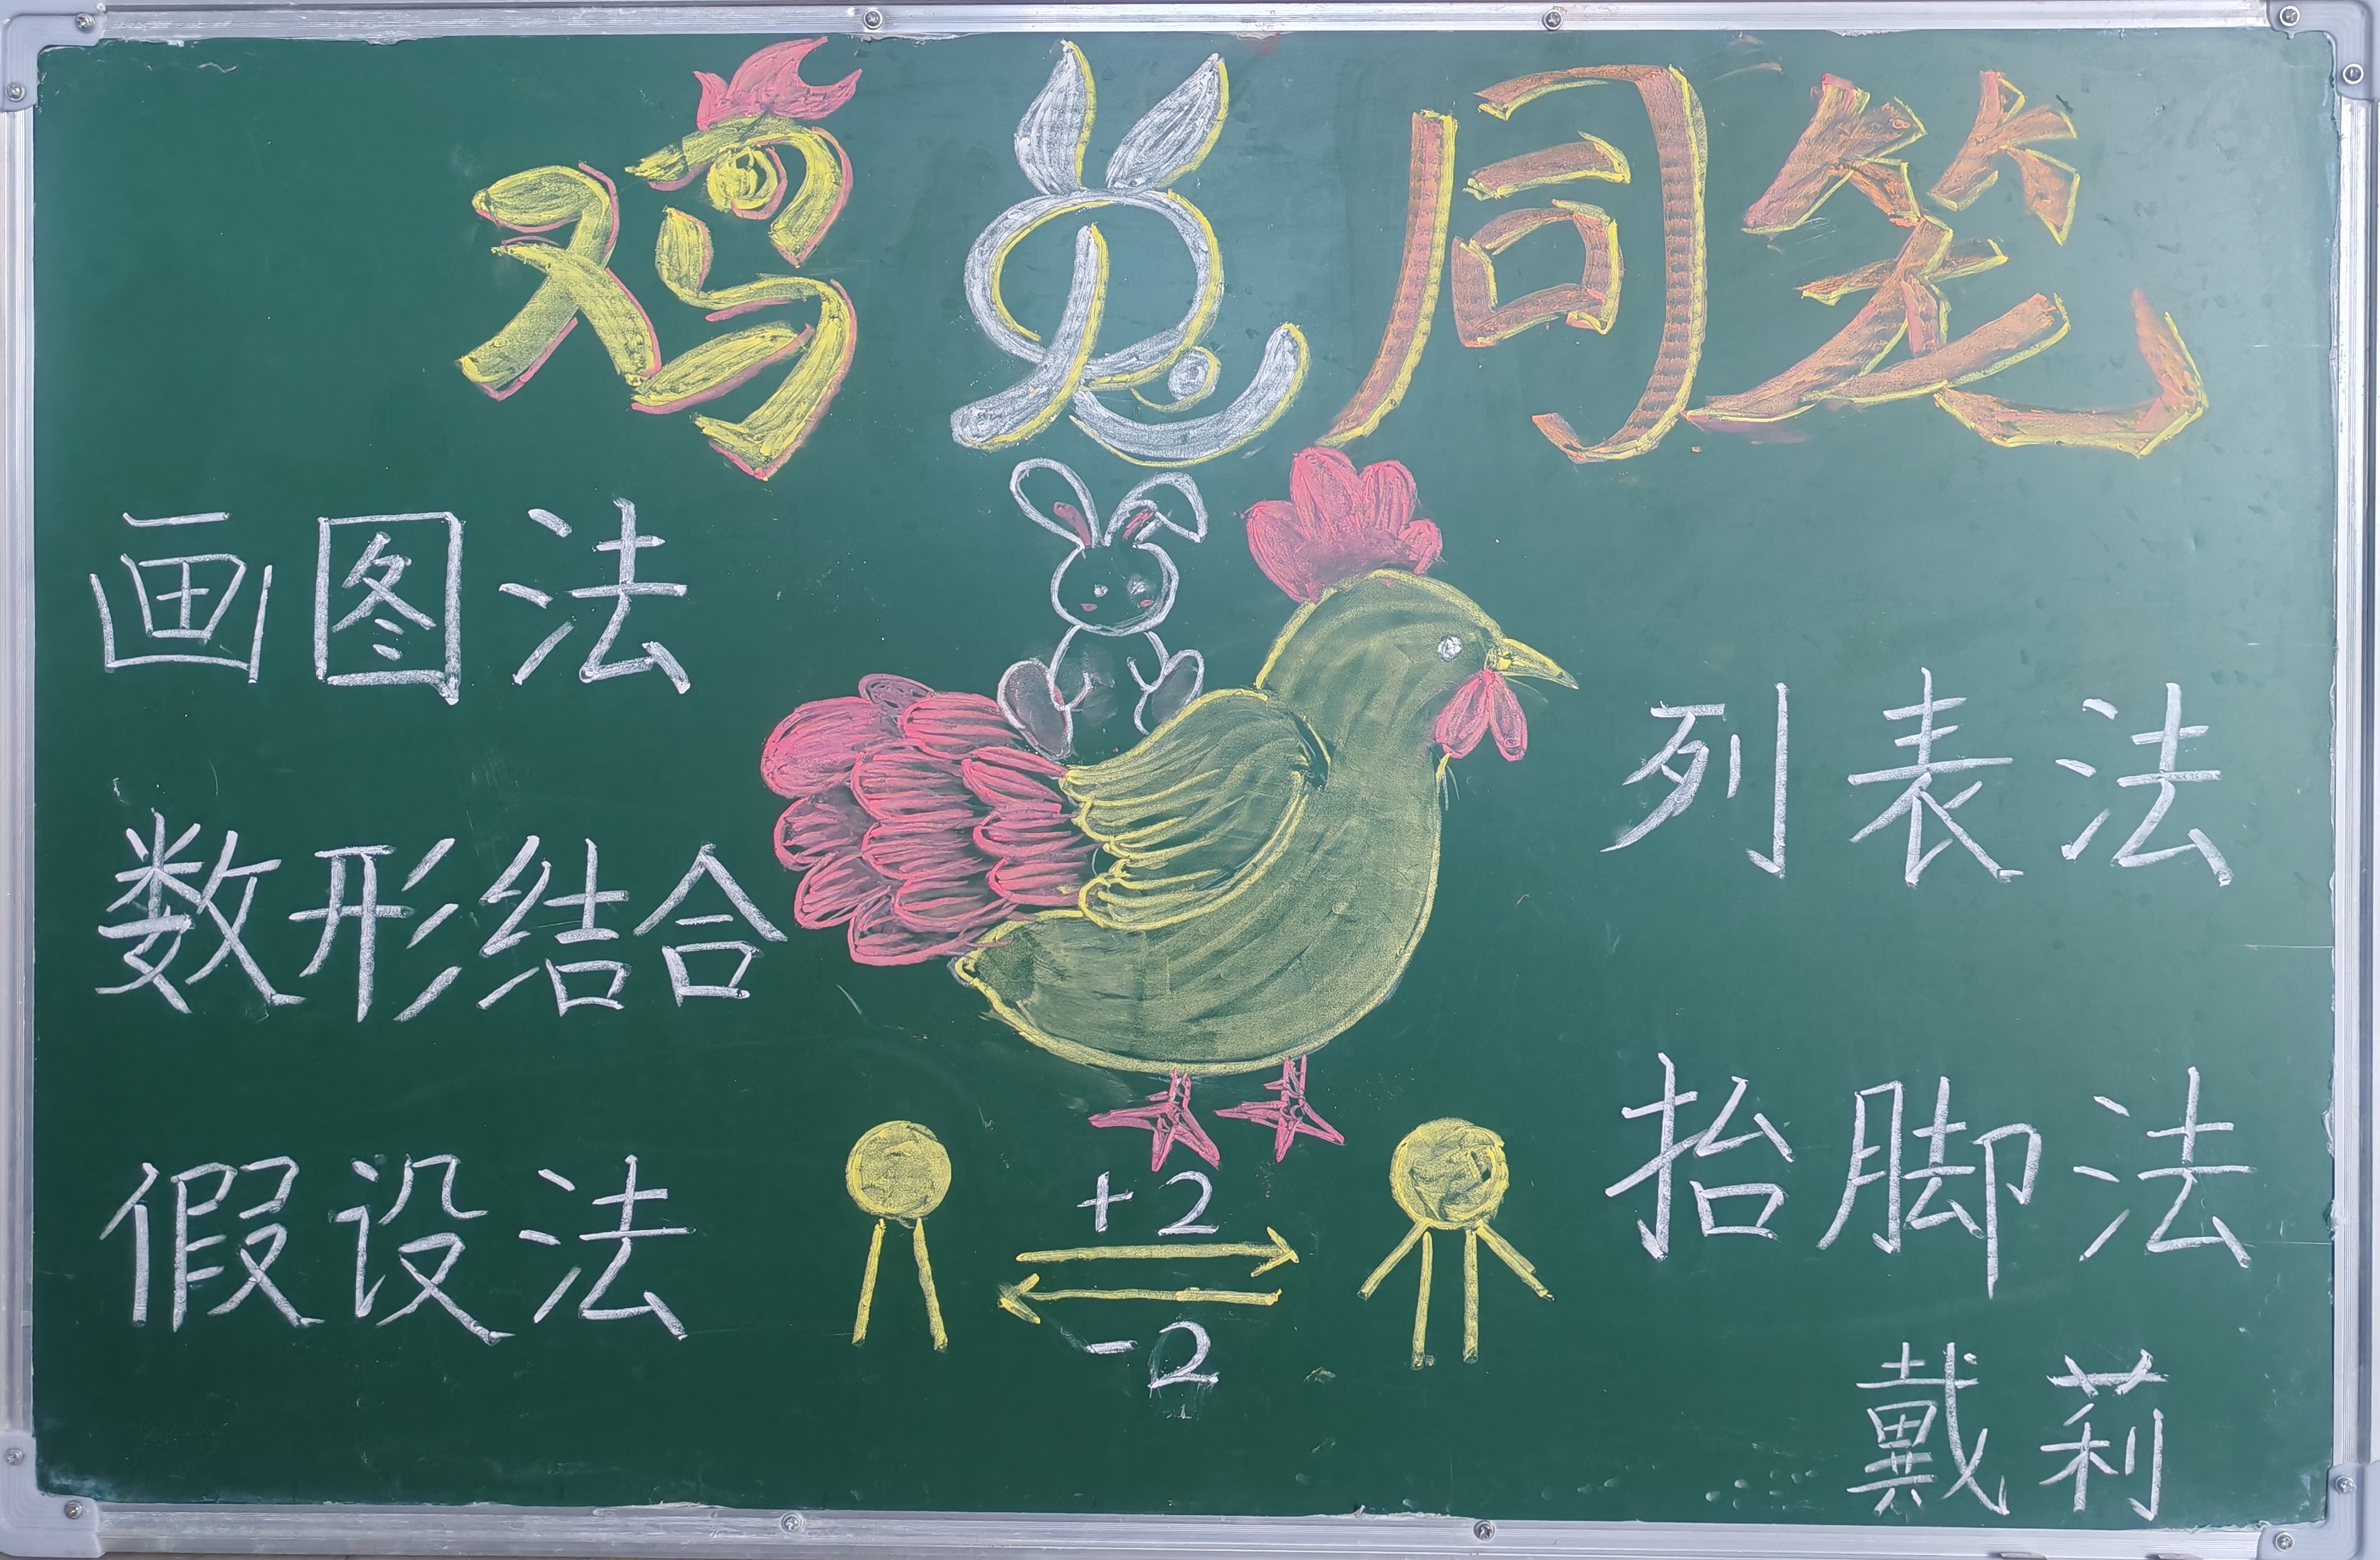 鸡兔同笼
画图法
列表法
数形结合
抬脚法
假设法
+2
-2
戴莉